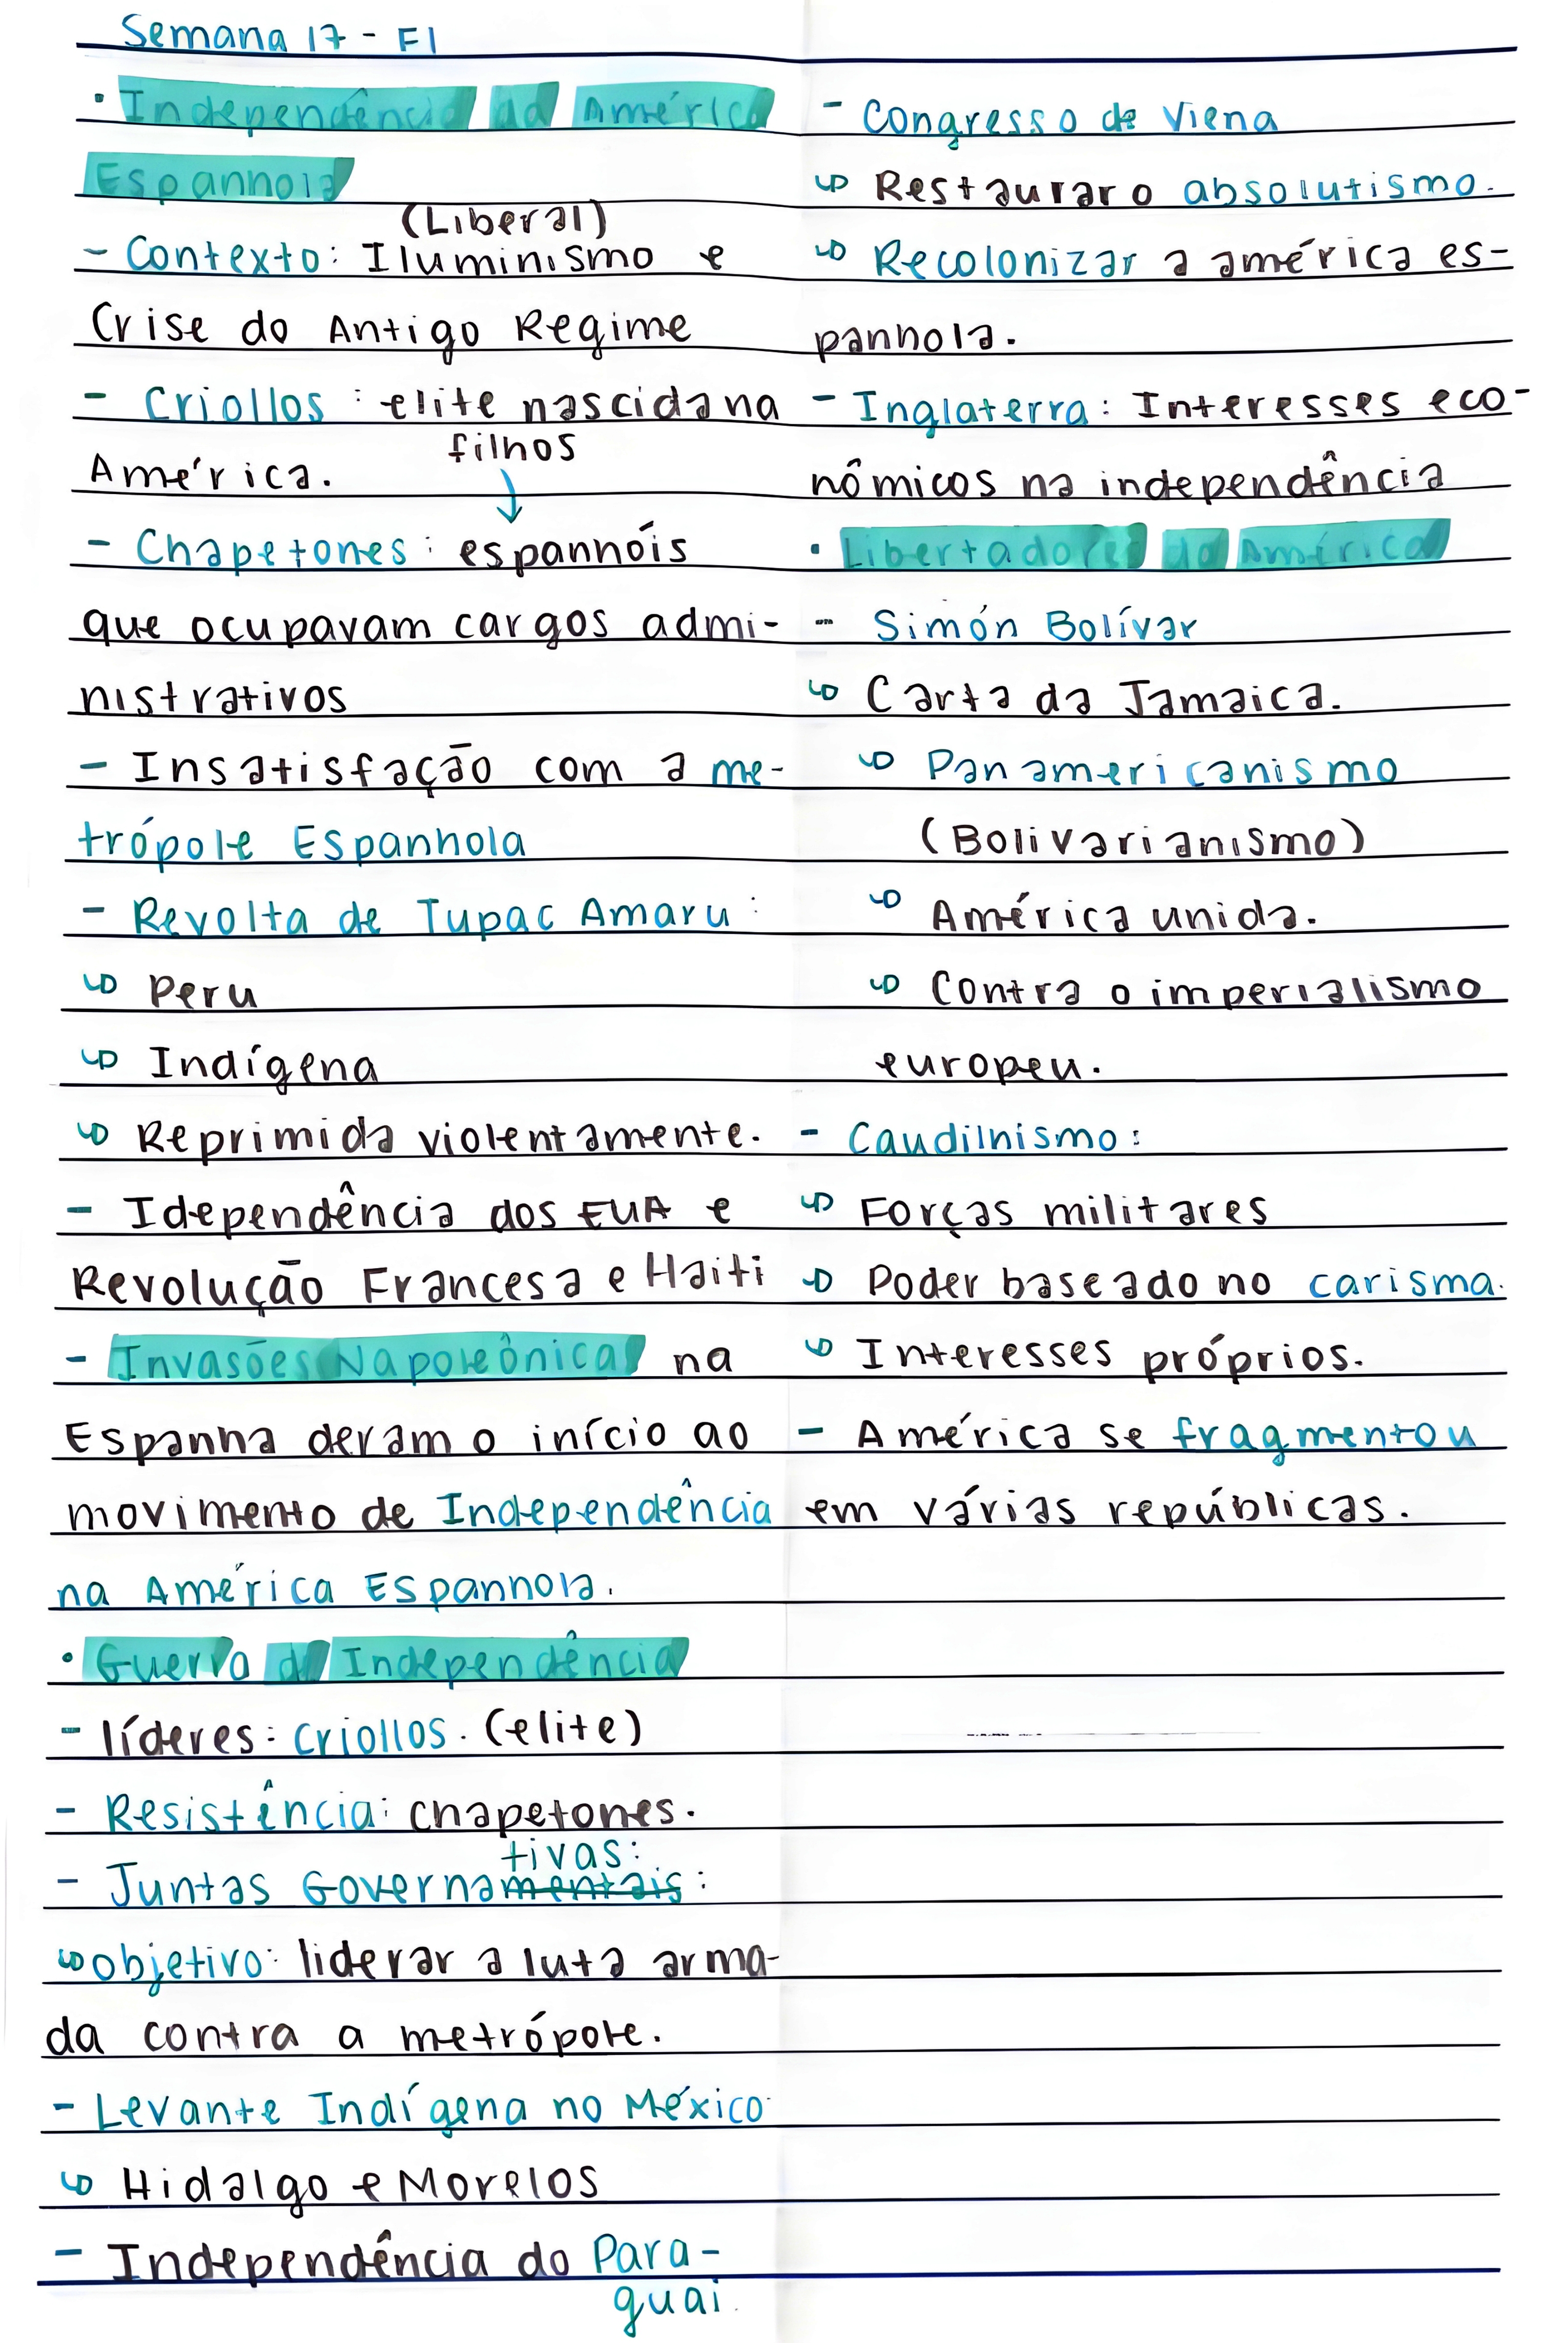 Semana 17 - F1
• Independência da América
Espanhola
(Liberal)
- Contexto: Iluminismo e
Crise do Antigo Regime
- Criollos : elite nascida na
América.
filhos
↓
- Chapetones: espanhóis
que ocupavam cargos admi-
nistrativos
- Insatisfação com a me-
trópole Espanhola
- Revolta de Tupac Amaru:
↳ Peru
↳ Indígena
↳ Reprimida violentamente.
- Idependência dos EUA e
Revolução Francesa e Haiti
- Invasões Napoleônicas na
Espanha deram o início ao
movimento de Independência
na América Espanhola.
• Guerra de Independência
- líderes: criollos. (elite)
- Resistência: chapetones.
tivas:
- Juntas Governamentais:
↳ objetivo: liderar a luta arma-
da contra a metrópole.
- Levante Indígena no México
↳ Hidalgo e Morelos
- Independência do Para-
guai.
- Congresso de Viena
↳ Restaurar o absolutismo.
↳ Recolonizar a américa es-
panhola.
- Inglaterra: Interesses eco-
nômicos na independência
• Libertadores da América
- Simón Bolívar
↳ Carta da Jamaica.
↳ Panamericanismo
(Bolivarianismo)
↳ América unida.
↳ Contra o imperialismo
europeu.
- Caudilhismo:
↳ Forças militares
↳ Poder baseado no carisma.
↳ Interesses próprios.
- América se fragmentou
em várias repúblicas.